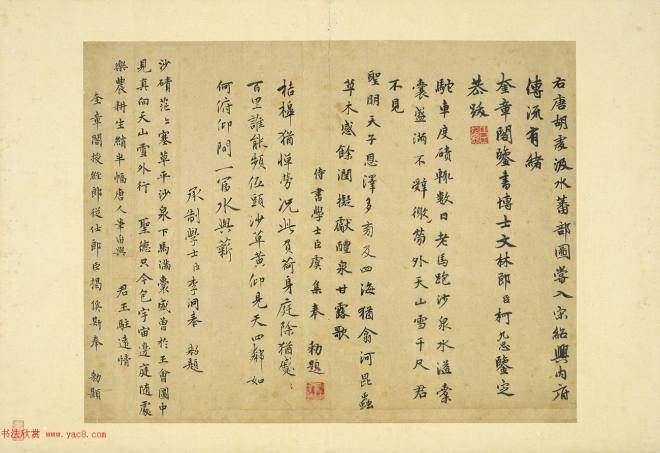 右唐胡虔汲水蕃部圖嘗入宋紹興內府
傳流有緒
奎章閣鑒書博士文林郎臣柯九思鑒定
恭跋
駝車度磧數日老馬跑沙泉水溢橐
囊盛滿不外天山雪千尺君
不見
聖明天子恩澤多育及四海猶翕河昆蟲
草木感餘潤擬獻醴泉甘露歌
侍書學士臣虞集奉勅題
桔槔猶憚勞況此負荷身庭除猶
百里誰能頻低頭沙草黃仰見天四鄰如
何俯仰間一寫水與薪
承制學士臣李泂奉勅題
沙磧茫々塞草平沙泉下馬滿囊盛曾於王會圖中
見真向天山雪外行 聖德只今包宇宙邊庭隨處
樂農耕生綃半幅唐人筆自興 君王駐遠情
奎章閣授經郎從仕郎臣揭傒斯奉 勅題
书法欣赏 www.yac8.com